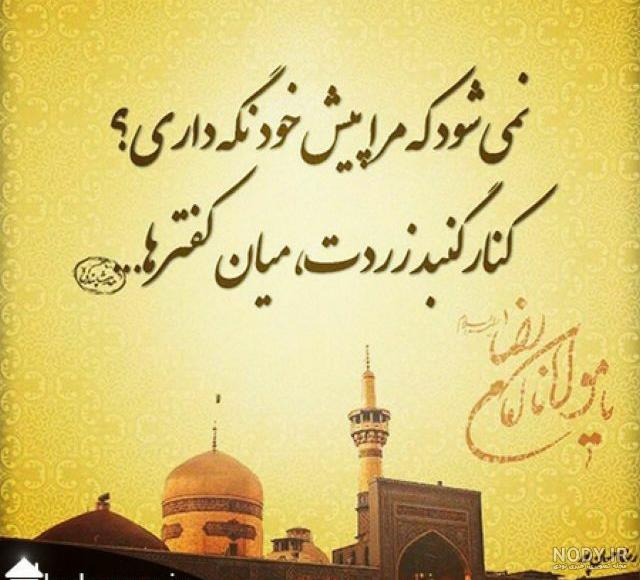 نمی شود که مرا پیش خود نگه داری؟
کنار گنبد زردت، میان کفترها...
یا مولانا یا امام رضا
NODY.IR